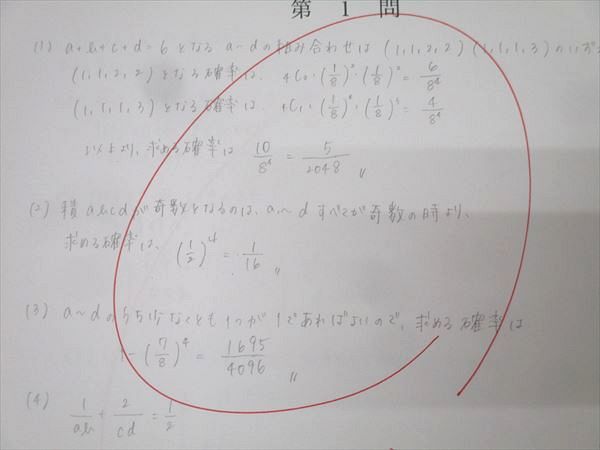 第 1 問
(1) a+b+c+d=6 となる a~d の組み合わせは (1,1,2,2) (1,1,1,3) のいずれ
(1,1,2,2) となる確率は、 ₄C₂・(1/8)²・(1/8)² = 6/8⁴
(1,1,1,3) となる確率は、 ₄C₁・(1/8)・(1/8)³ = 4/8⁴
以上より、求める確率は 10/8⁴ = 5/2048 〃
(2) 積 abcd が奇数となるのは、a~d すべてが奇数の時より、
求める確率は、 (1/2)⁴ = 1/16 〃
(3) a~d のうち少なくとも1つが1であればよいので、求める確率は
1-(7/8)⁴ = 1695/4096 〃
(4) 1/ab + 2/cd = 1/2